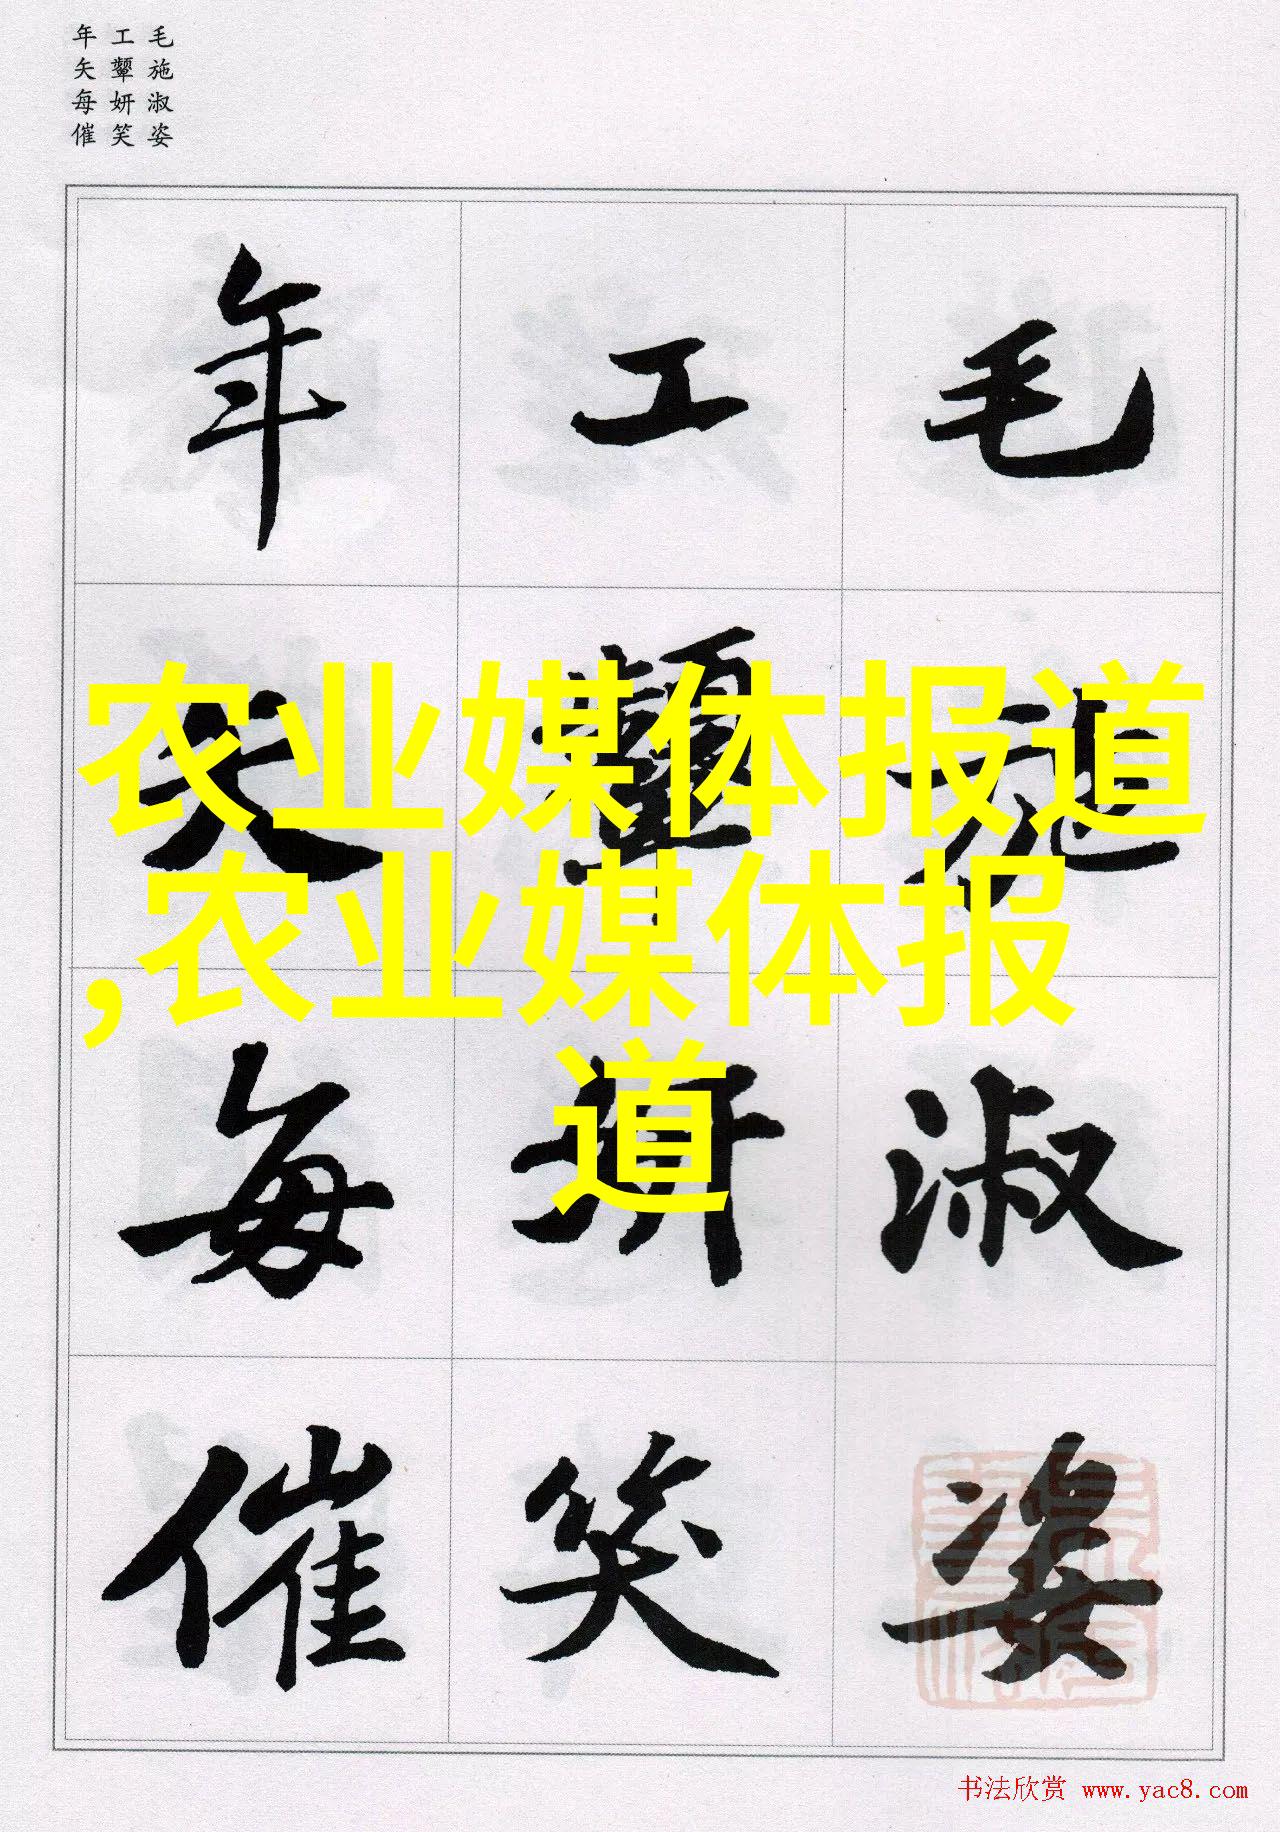 毛施淑姿
工顰妍笑
年矢每催
毛施淑姿
工顰妍笑
年矢每催
农业媒体报道
,农业媒体报
道
书法欣赏 www.yac8.com